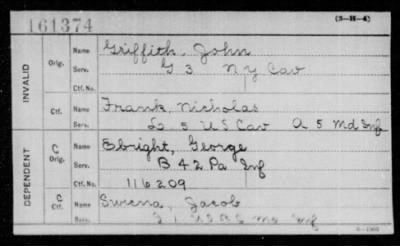 161374
(3-H-4)
INVALID
Orig.
Name Griffith, John
Serv. G 3 NY Cav
Ctf. No.
Ctf.
Name Frank, Nicholas
Serv. L 5 US Cav A 5 Md Inf
DEPENDENT
C
Orig.
Name Ebright, George
Serv. B 42 Pa Inf
Ctf. No. 116209
C
Ctf.
Name Jacob
Serv. Inf